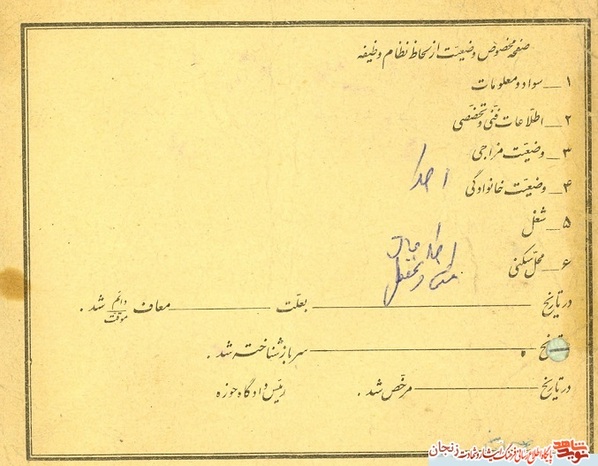 صفحه مخصوص وضعیت از لحاظ نظام وظیفه
۱ــ سواد و معلومات
۲ــ اطلاعات فنی و تخصصی
۳ــ وضعیت مزاجی
۴ــ وضعیت خانوادگی
۵ــ شغل
۶ــ محل سکنی
در تاریخ ــــ بعلت ــــ معاف دائم موقت شد .
تاریخ ــــ سرباز شناخته شد .
در تاریخ ــــ مرخص شد . رئیس دادگاه حوزه
نوید شاهد پایگاه اطلاع رسانی فرهنگ ایثار و شهادت زنجان